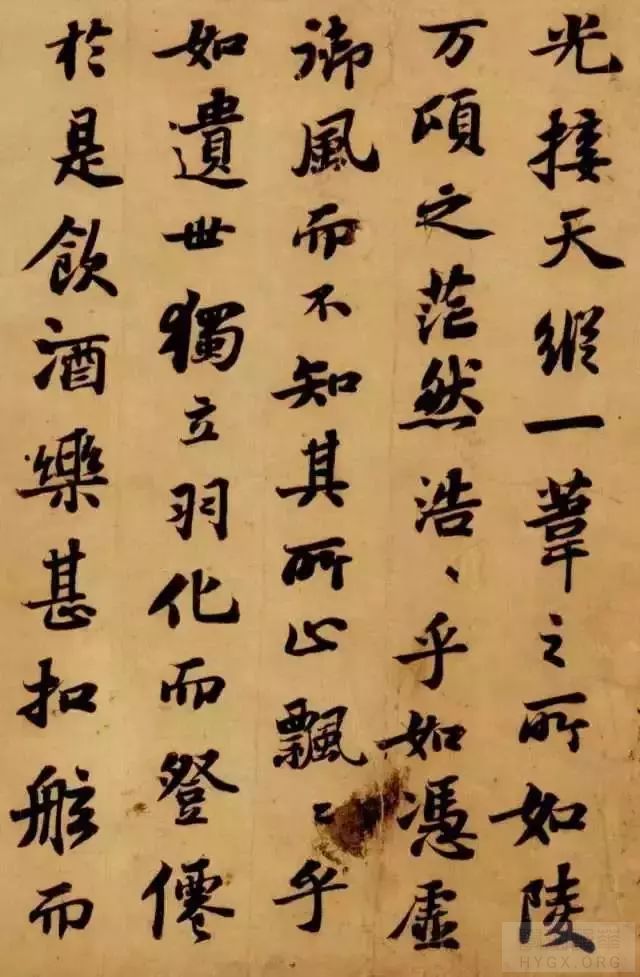 光接天縱一葦之所如陵
万頃之茫然浩〻乎如馮虛
御風而不知其所止飄〻乎
如遺世獨立羽化而登僊
於是飲酒樂甚扣舷而
HYGX.ORG